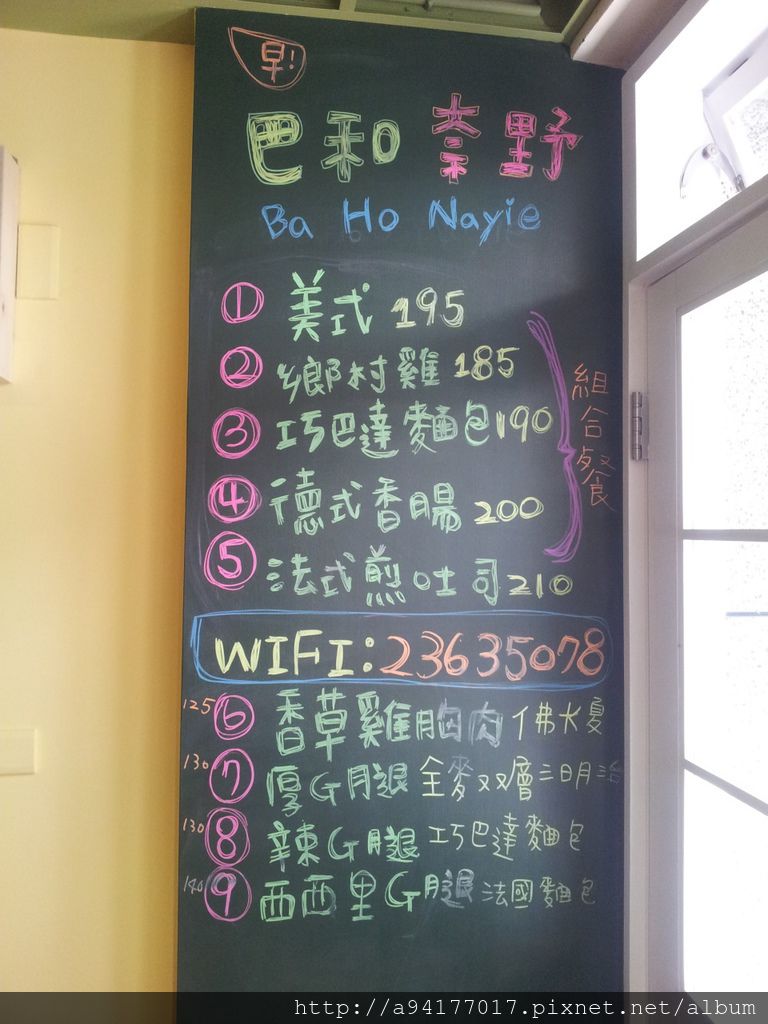 早!
巴和奈野
Ba Ho Nayie
① 美式 195
② 鄉村雞 185
③ 巧巴達麵包 190
④ 德式香腸 200
⑤ 法式煎吐司 210
組合餐
WIFI:23635078
125 ⑥ 香草雞胸肉 佛卡夏
130 ⑦ 厚G腿 全麥双層三明治
130 ⑧ 辣G腿 巧巴達麵包
140 ⑨ 西西里G腿 法國麵包
http://a94177017.pixnet.net/album